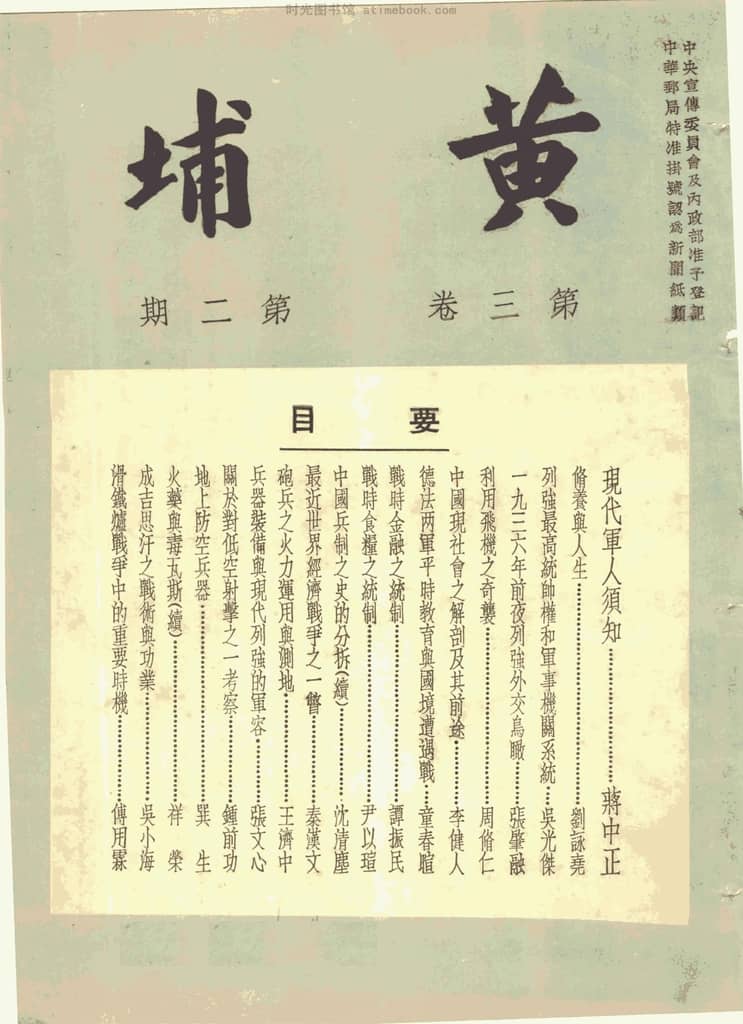 时光图书馆 atimebook.com
中央宣傳委員會及內政部准予登記
中華郵局特准掛號認為新聞紙類
黃埔
第三卷
第二期
要目
現代軍人須知…………蔣中正
脩養與人生…………劉詠堯
列強最高統帥權和軍事機關系統…吳光傑
一九三六年前夜列強外交鳥瞰……張肇融
利用飛機之奇襲…………周脩仁
中國現社會之解剖及其前途……李健人
德法两軍平時教育與國境遭遇戰…童春暄
戰時金融之統制…………譚振民
戰時食糧之統制…………尹以瑄
中國兵制之史的分拆(續)…………沈清塵
最近世界經濟戰爭之一瞥…………秦漢文
砲兵之火力運用與測地…………王濟中
兵器裝備與現代列強的軍容……張文心
關於對低空射擊之一考察…………鍾前功
地上防空兵器…………巽生
火藥與毒瓦斯(續)…………祥榮
成吉思汗之戰術與功業…………吳小海
滑鐵爐戰爭中的重要時機…………傅用霖